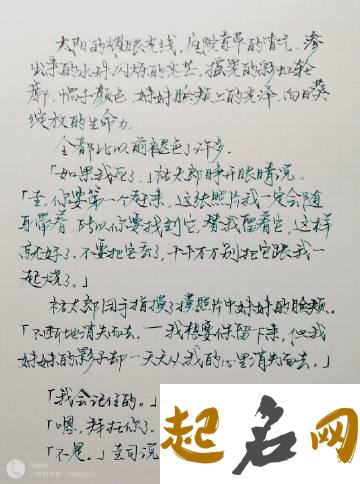 太阳的耀眼光线，庭院青草的青气，渗
出来的水珠闪烁的光芒，摇晃的彩虹轮
廓，帽子颜色，妹妹脸颊上的光泽，向日葵
绽放的生命力。
全都比以前褪色了许多。
「如果我死了，」祐太郎睁开眼睛说。
「圭，你要第一个赶来。这张照片我一定会随
身带着，所以你要找到它，替我留着它，这样
就好了。不要把它丢了，千万万别把它跟我一
起烧了。」
祐太郎用手指摸了摸照片中妹妹的脸颊。
「不断地消失而去。一我想要保留下来，但我
妹妹的影子却一天天从我的心里消失而去。」
「我会记住的。」
「嗯，拜托你了。
「不是。」圭司说
起名网